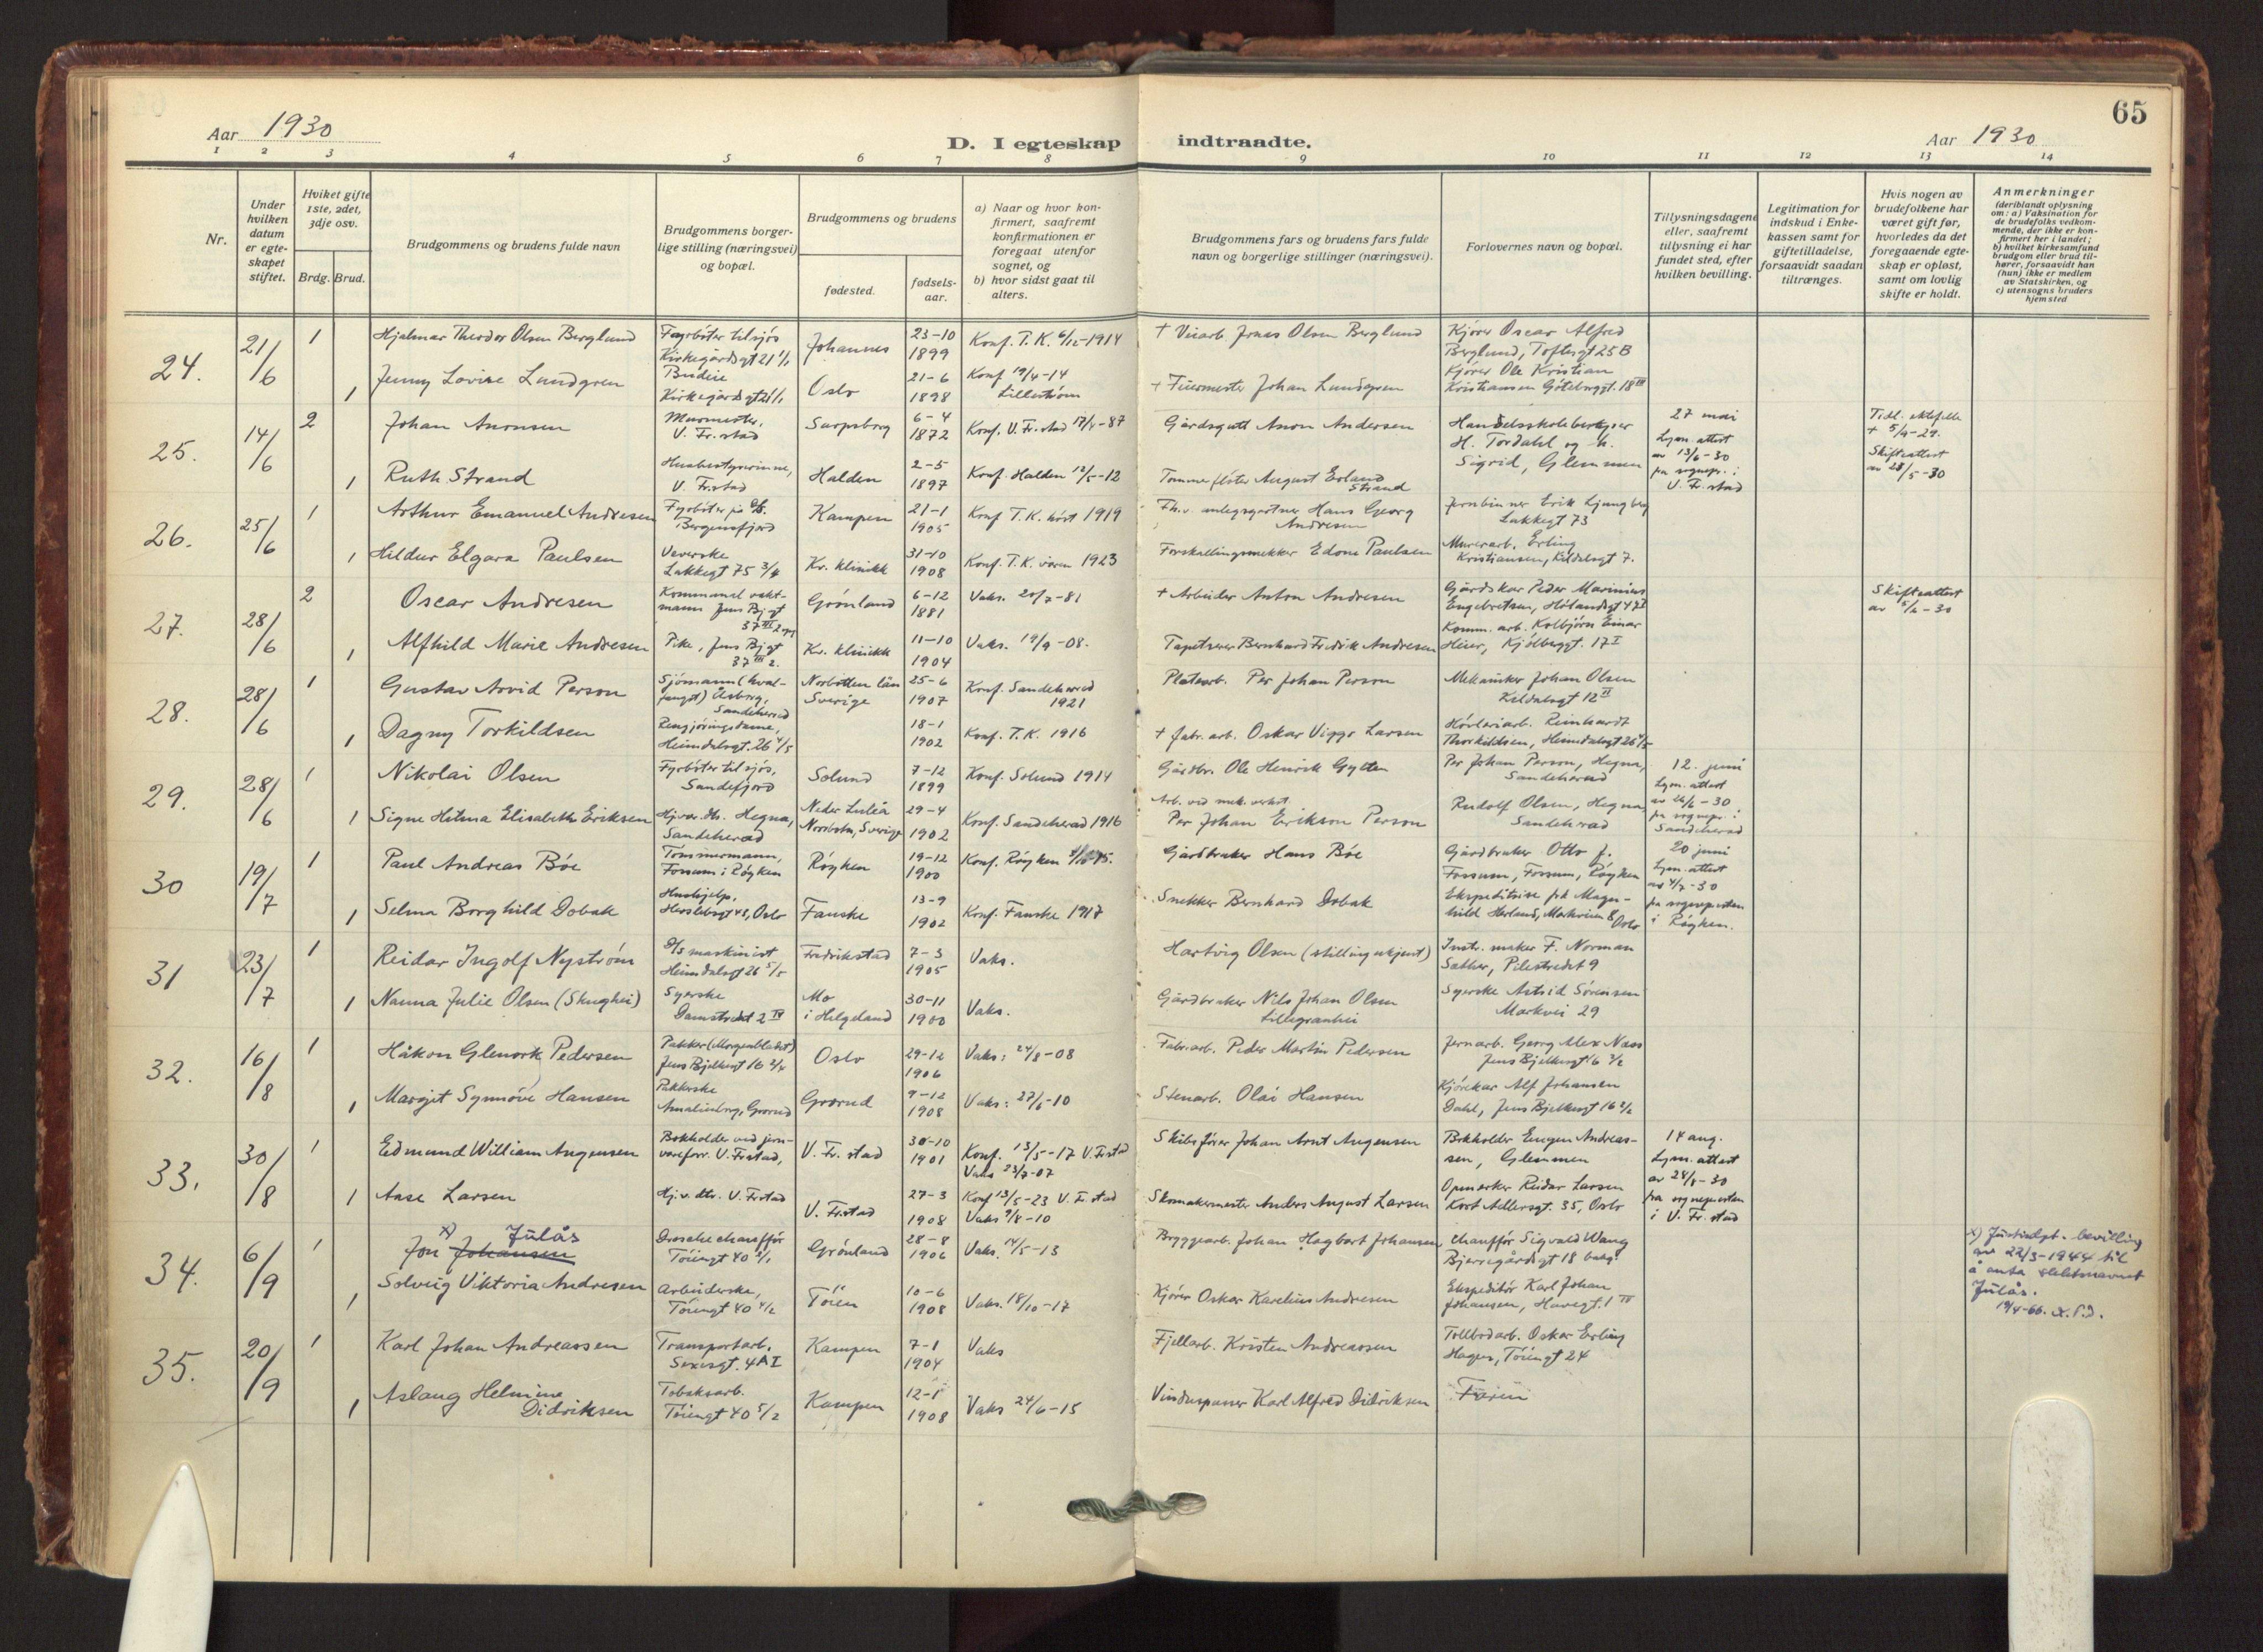 65
Aar 1930
D. I egteskap indtraadte.
Aar 1930
1 2 3 4 5 6 7 8 9 10 11 12 13 14
Nr.
Under hvilken datum er egteskapet stiftet.
Hviket gifte 1ste, 2det, 3dje osv.
Brdg. Brud.
Brudgommens og brudens fulde navn
Brudgommens borgerlige stilling (næringsvei) og bopæl.
Brudgommens og brudens
fødested.
fødselsaar.
a) Naar og hvor konfirmert, saafremt konfirmationen er foregaat utenfor sognet, og
b) hvor sidst gaat til alters.
Brudgommens fars og brudens fars fulde navn og borgerlige stillinger (næringsvei).
Forlovernes navn og bopæl.
Tillysningsdagene eller, saafremt tillysning ei har fundet sted, efter hvilken bevilling.
Legitimation for indskud i Enkekassen samt for giftetilladelse, forsaavidt saadan tiltrænges.
Hvis nogen av brudefolkene har været gift før, hvorledes da det foregaaende egteskap er opløst, samt om lovlig skifte er holdt.
Anmerkninger (deriblandt oplysning om: a) Vaksination for de brudefolks vedkommende, der ikke er konfirmert her i landet; b) hvilket kirkesamfund brudgom eller brud tilhører, forsaavidt han (hun) ikke er medlem av Statskirken, og c) utensogns bruders hjemsted
24. 21/6 1 Hjalmar Theodor Olsen Berglund Fyrbøter til sjøs Kirkegårdsgt 21 1/1 Johannes 23-10 1899 Konf. T.K. 6/12-1914 + Viearb. Jonas Olsen Berglund Kjører Oscar Alfred Berglund, Toftesgt 25 B
1 Jenny Lovise Lundgren Budeie Kirkegårdsgt 21 1/1 Oslo 21-6 1898 Konf 19/4-14 Lillestrøm + Johan Lundgren Kjører Ole Kristian Kristiansen Göteborggt. 18 III
25. 14/6 2 Johan Aronsen Murmester, V. Fr.stad Sarpsborg 6-4 1872 Konf. V. Fr.stad -87 Gårdsgutt Aron Andersen Handelsskolebestyrer H. Tordahl og h. Sigrid, Glemmen 27 mai Lysn. attest av 13/6-30 fra sognepr. i V. Fr.stad Tidl. ektefelle + 5/9-29. Skifteattest av 28/5-30
1 Ruth Strand Husbestyrerinne, V. Fr.stad Halden 2-5 1897 Konf. Halden 12/5-12 Tømmerfløter August Erland Strand
26. 25/6 1 Arthur Emanuel Andresen Fyrbøter på Bergensfjord Kampen 21-1 1905 Konf T.K. høst 1919 Fh.v. anlegsgartner Hans Georg Andresen Jernbinner Erik Ljungberg Lakkegt 73
1 Hildur Elgara Paulsen Veverske Lakkegt 75 3/4 Kr. klinikk 31-10 1908 Konf. T.K. våren 1923 Forskallingssnekker Edone Paulsen Murerarb. Erling Kristiansen, Kildalsgt 7.
27. 28/6 2 Oscar Andresen Kommunal vaktmann Jens Bj.gt 37 III Grønland 6-12 1881 Vaks. 20/7-81 + Arbeider Anton Andresen Gårdskar Peder Marinius Engebretsen, Hølandsgt 4 Skifteattest av 5/6-30
1 Alfhild Marie Andresen Pike, Jens Bj.gt 37 III 2. Kr. klinikk 11-10 1904 Vaks. 19/9-08. Tapetserer Bernhard Fredrik Andresen Komm. arb. Kolbjørn Einar Heier, Kjølberggt. 17 I
28. 28/6 1 Gustav Arvid Person Sjømann (hvalfangst) Åsborg, Sandeherad Norbotten län Sverige 25-6 1907 Konf. Sandeherad 1921 Platearb. Per Johan Person Mekaniker Johan Olsen Kildalsgt 12 II
1 Dagny Torkildsen Rengjøringsdame, Heimdalsgt. 26 4/5 18-1 1902 Konf. T.K. 1916 + fabr. arb. Oskar Viggo Larsen Høvleriarb. Reinhardt Thorkildsen, Heimdalsgt 26 4/5
29. 28/6 1 Nikolai Olsen Fyrbøter til sjøs, Sandefjord Solund 7-12 1899 Konf. Solund 1914 Gårdbr. Ole Henrik Gytten Per Johan Person, Hegna, Sandeherad 12. juni Lysn. attest av 26/6-30 fra sognepr. i Sandeherad
1 Signe Hilma Elisabeth Eriksen Hjvær. dtr. Hegna, Sandeherad Neder Luleå Norrbotn, Sverige 29-4 1902 Konf. Sandeherad 1916 Arb. ved mek. verkst. Per Johan Erikson Person Rudolf Olsen, Hegna, Sandeherad
30 19/7 1 Paul Andreas Bøe Tømmermann, Forsum i Røyken Røyken 19-12 1900 Konf. Røyken Gårdbruker Hans Bøe Gårdbruker Otto J. Fossum, Fossum, Røyken 20 juni Lysn. attest av 4/7-30 fra sognepresten i Røyken.
1 Selma Borghild Dobak Hushjelp. Herslebsgt 48, Oslo Fauske 13-9 1902 Konf. Fauske 1917 Snekker Bernhard Dobak Ekspeditrise frk Magnhild Herland, Markveien 8, Oslo
31 23/7 1 Reidar Ingolf Nystrøm D/s maskinist Heimdalsgt 26 5/5 Fredrikstad 7-3 1905 Vaks. Hartvig Olsen (stilling ukjent) Instr. maker F. Norman Sæther, Pilestredet 9
1 Nanna Julie Olsen (Skughei) Syerske Damstredet 2 IV Mo i Helgeland 30-11 1900 Vaks. Gårdbruker Nils Johan Olsen Lillegranhei Syerske Astrid Sørensen Markvei 29
32. 16/8 1 Håkon Glenork Pedersen Pakker (Morgenbladet) Jens Bjelkesgt 16 2/2 Oslo 29-12 1906 Vaks: 24/8-08 Fabr.arb. Peder Martin Pedersen Jernarb. Georg Alex Næss Jens Bjelkesgt 16 3/2
1 Margit Synnøve Hansen Pakkerske Amalienborg, Grorud Grorud 9-12 1908 Vaks: 27/6-10 Stenarb. Olai Hansen Kjørekar Alf Johansen Dahl, Jens Bjelkesgt 16 2/2
33. 30/8 1 Edmund William Augensen Bokholder ved jernvareforr. V. Fr.stad, V. Fr. stad 30-10 1901 Konf. 13/5-17 V. Fr.stad Vaks 23/7-07 Skibsfører Johan Arnt Augensen Bokholder Eugen Andreassen, Glemmen 14 aug. Lysn. attest av 28/8-30 fra sognepresten i V. Fr. stad
1 Aase Larsen Hj.v. dtr. V. Fr.stad V. Fr.stad 27-3 1908 Konf 13/5-23 V. Fr.stad Vaks 9/8-10 Skomakermester Anders August Larsen Opmerker Reidar Larsen Kort Adelersgt. 35, Oslo
34. 6/9 1 x) Jon Johansen Julås Droschechauffør Tøiengt 40 Grønland 28-8 1906 Vaks. 14/5-13 Bryggearb. Johan Hagbart Johansen Chauffør Sigvald Wang Bjerregårdsgt 18 x) Justisdept. bevilling av 22/3-1944 til å anta slektsnavnet Julås. 19/4-66.
1 Solveig Viktoria Andresen Arbeiderske, Tøiengt 40 4/2 Tøien 10-6 1908 Vaks. 18/10-17 Kjører Oskar Karelius Andresen Ekspeditør Karl Johan Johansen, Havegt. 1 IV
35. 20/9 1 Karl Johan Andreassen Transportarb. Sexesgt. 4A I Kampen 7-1 1904 Vaks Fjellarb. Kristen Andreassen Tollbodarb. Oskar Erling Hagen, Tøiengt 24
1 Aslaug Helmine Didriksen Tobaksarb. Tøiengt 40 5/2 Kampen 12-1 1908 Vaks 24/6-15 Vinduspusser Karl Alfred Didriksen Faren